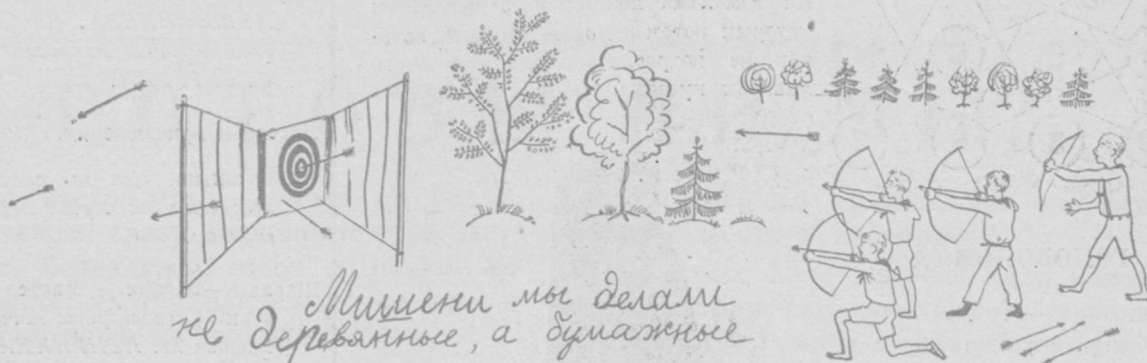 Мишени мы делали
не деревянные, а бумажные